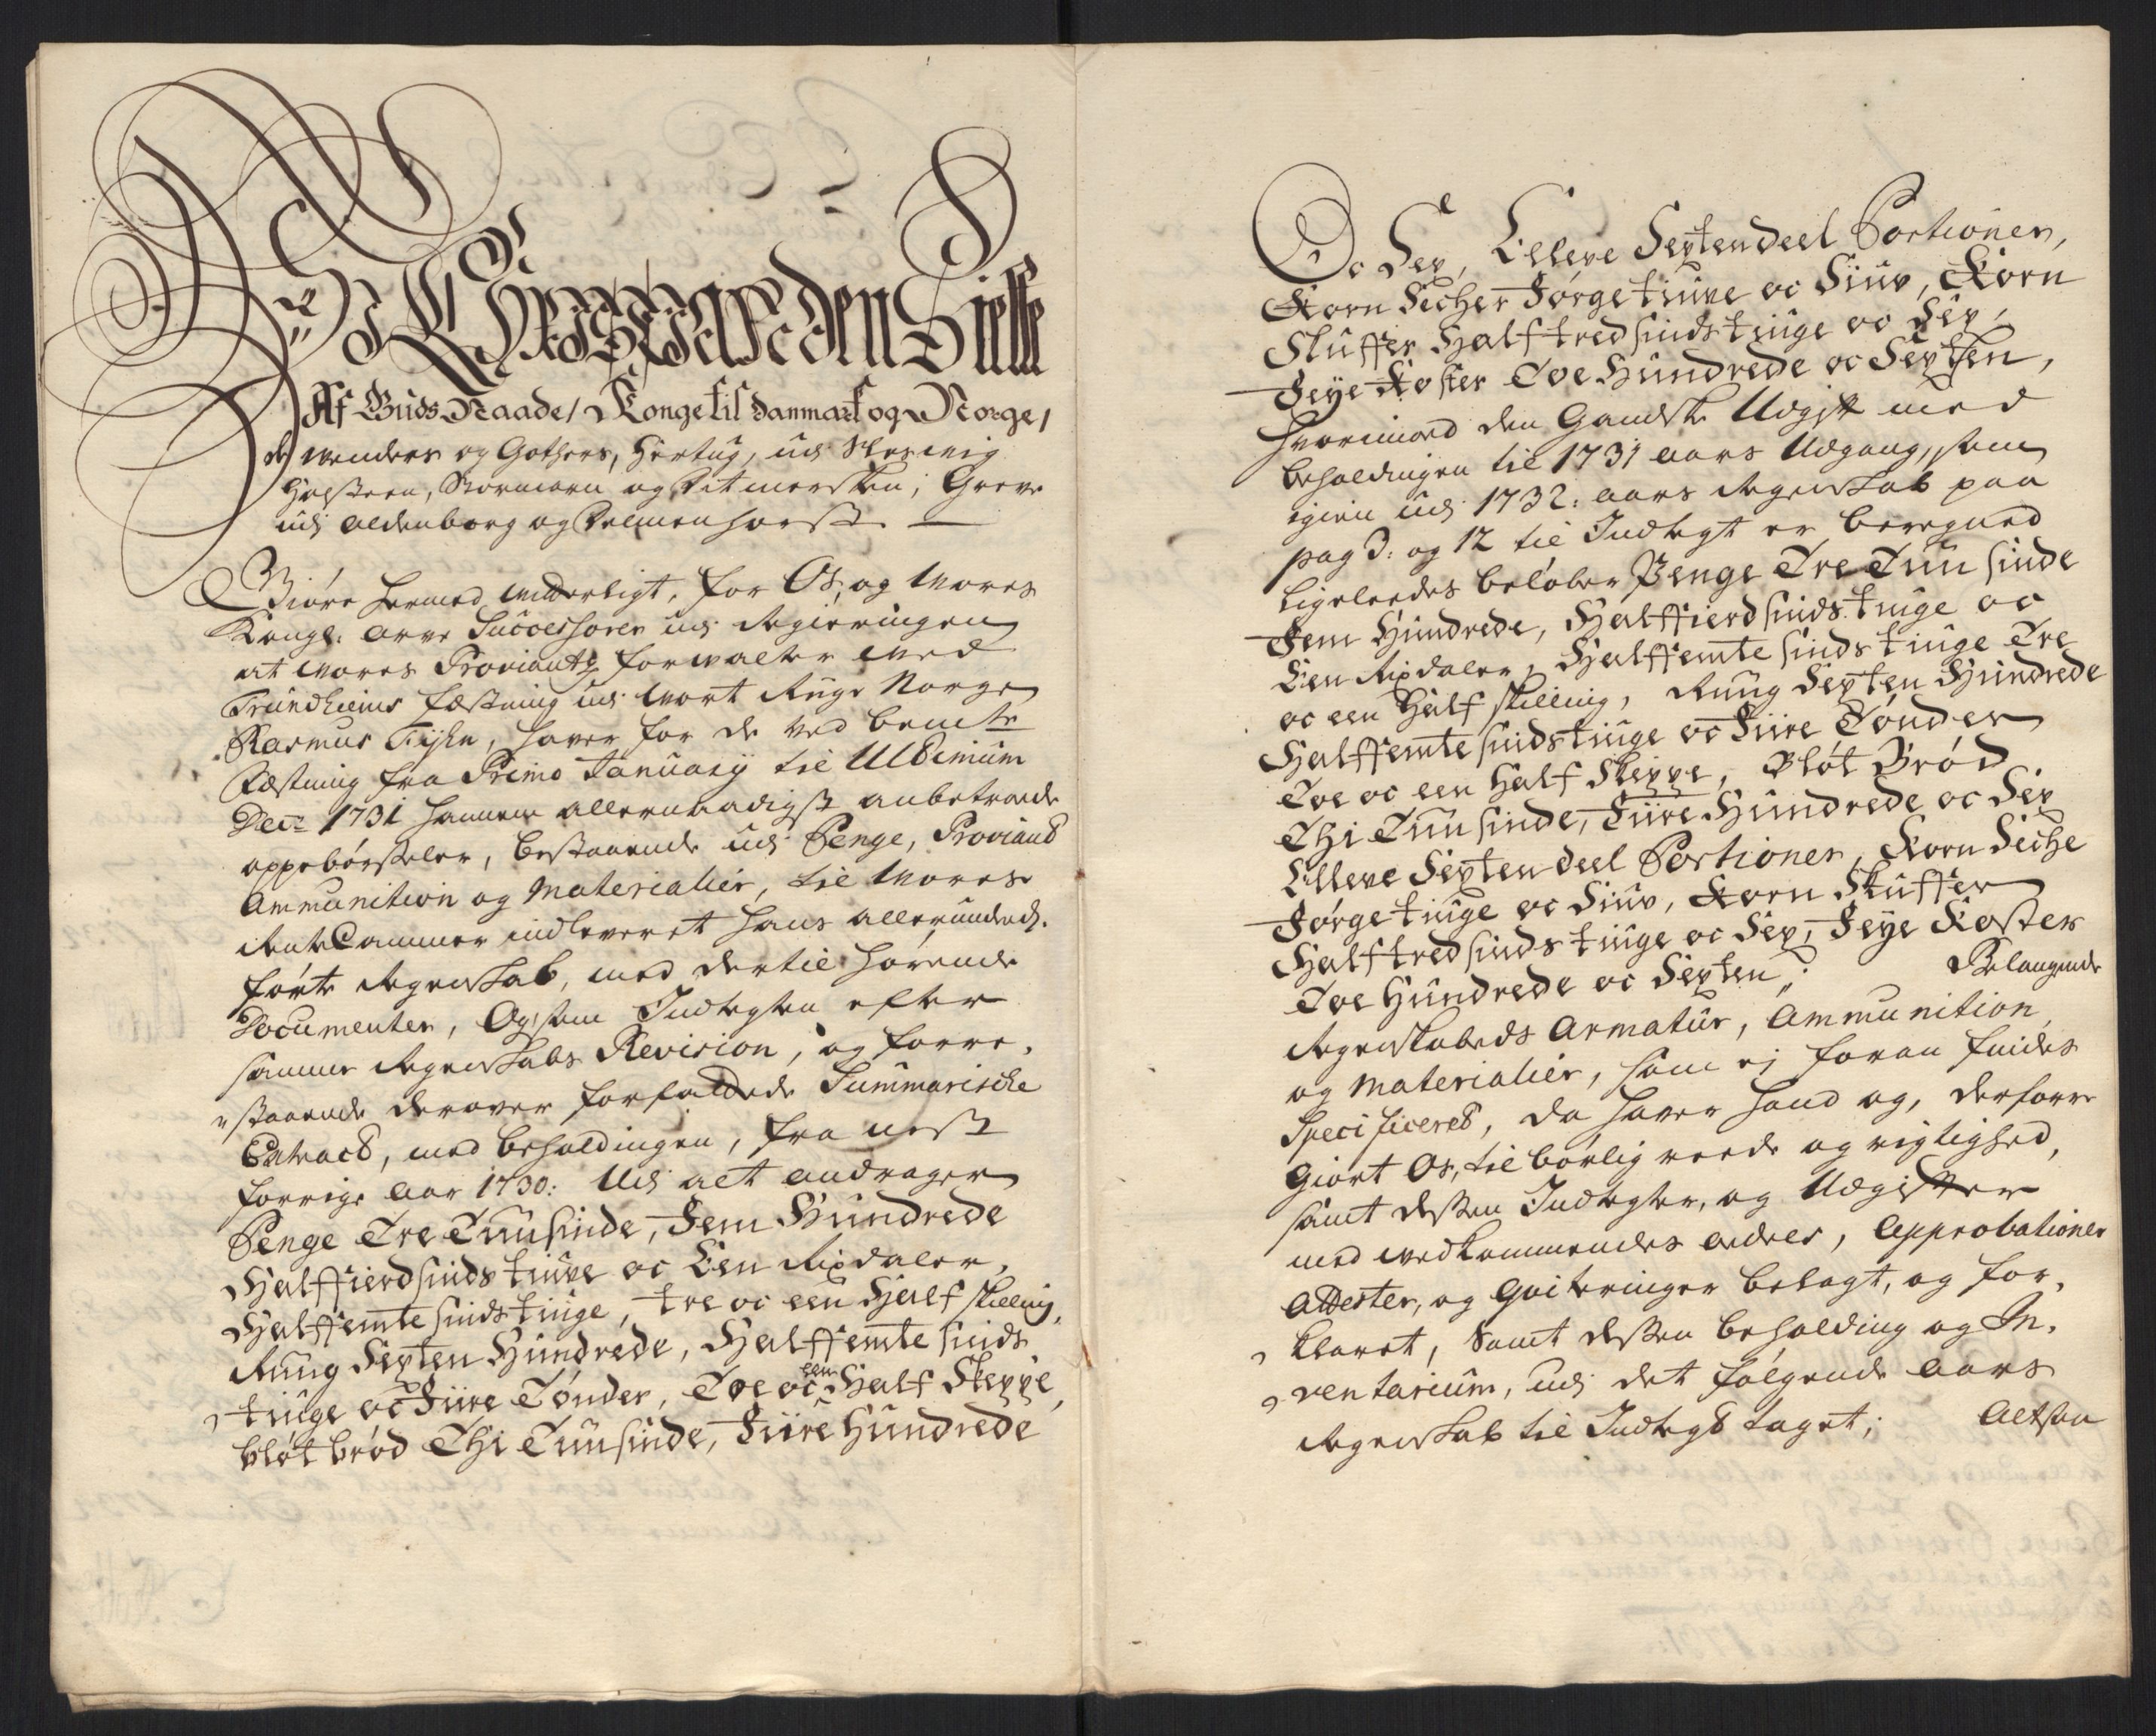 Vi Christian den Siette
Af Guds Naade, Konge til Danmark og Norge,
de wenders og Gothers, Hertug, udj Slesvig
Holsteen, Stormarn og Ditmersken, Greve
udj Oldenborg og Delmenhorst. —
Giöre hermed witterligt, for Os, og Wores
Kongl: Arve Successorer udj Regieringen
at Wores Proviantz forwalter wed
Trundhiems fæstning udj Wort Rige Norge
Rasmus Fyhn, haver for de ved bemte
Fæstning fra Primo Januarij til Ultimum
Decr 1731 hannem allernaadigst anbetroede
oppebörseler, bestaaende udj Penge, Proviant
Ammunition og Materialier, til Wores
RenteCammer indleveret hans allerunderd.
förte Regenskab, med dertil hörende
Documenter, Og som Indtegten efter
samme Regenskabs Revision, og forre,
„staaende derover forfattede Summarische
Extract, med beholdingen, fra nest
forrige Aar 1730: Udj alt andrager
Penge Tre Tuusinde, Fem Hundrede
Halffierdsindstiuve oc Een Rixdaler,
Halffemtesindstiuge, tre oc een Half skilling,
Ruug Sexten Hundrede, Halffemtesinds
„tiuge oc Fiire Tönder, Toe oc een Half Skeppe,
blöt bröd Thi Tuusinde, Fiire Hundrede
Oc Sex, Elleve Sextendeel Portioner,
Korn Secher Förgetiuve oc Siuv, Korn
Skuffer Halftredsindstiuge oc Sex,
Feye Koster Toe Hundrede oc Sexten,
Hvorimod den Gandske Udgift med
beholdingen til 1731 Aars Udgang, som
igien udj 1732: Aars Regenskab paa
pag 3: og 12 til Indtegt er beregned
Ligeleedes beløber Penge Tre Tuusinde
Fem Hundrede, Halffierdsindstiuge oc
Een Rixdaler, Halffemtesindstiuge Tre
oc een Half skilling, Ruug Sexten Hundrede
Halffemtesindstiuge oc Fiire Tönder
Toe oc een Half Skeppe, Blöt Bröd
Thi Tuusinde, Fiire Hundrede oc Sex
Elleve Sextendeel Portioner, Korn Seche
Förgetiuge oc Siuv, Korn Skuffer
Halftredsindstiuge oc Sex, Feye Koster
Toe Hundrede oc Sexten; Belangende
Regenskabeds Armatur, Ammunition
og Materialier, som ej foran findes
Specificeret, da haver hand og, derforre
giort Os, til börlig reede og rigtighed,
samt dessen Indtegter, og Udgifter
med vedkommendes ordres, Approbationer
Attester, og Qviteringer belagt, og for,
„klaret, Samt dessen beholding og In,
„ventarium, udj det følgende Aars
Regenskab til Indtegt taget; Altsaa